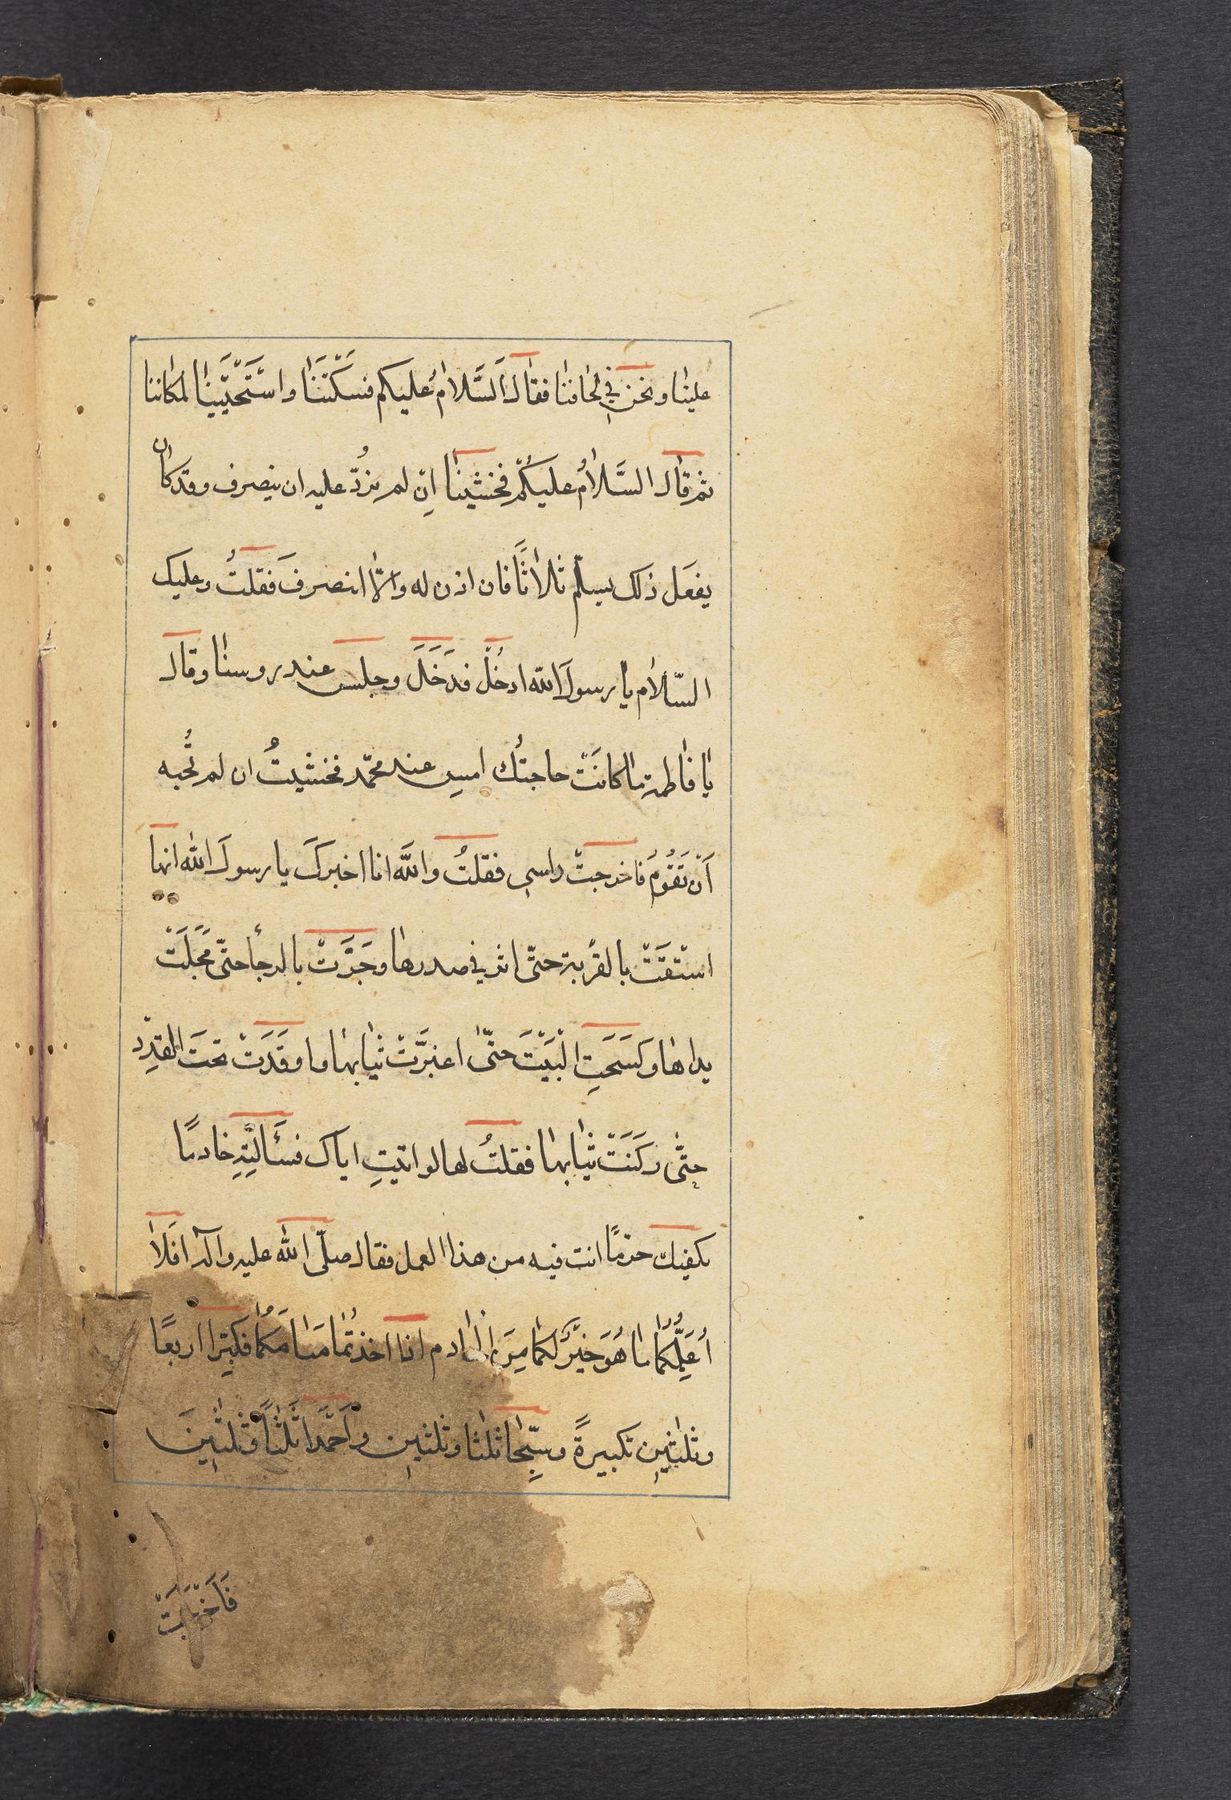 علينا ونحن في لحافنا فقال اَلسَّلام عليكم فسَكَتْنَا واسْتَحْيَيْنا لمكاننا
ثم قال السَّلامُ عليكُم فخشينا اِن لم نرُدّ عليه ان ينصرف وقد كان
يفعَل ذلك يسلّم ثلاثًا فان اذن له والّا انصرفَ فقلتُ وعليك
السّلام يا رسولَ الله ادخُل فدَخَلَ وجلس عند روسنا وقال
يا فاطمة ما كانَتْ حاجتُك امسِ عند محمّد فخشيتُ ان لم تُجبه
اَنْ تَقُومَ فاخرجتُ راسي فقلتُ واللَّه انا اخبركَ يا رسولَ الله انها
استَقَتْ بالقربة حتّى اثر في صدرها وجَرَّتْ بالرحا حتّى مَجَلَتْ
يداها وكَسَحَتِ الْبَيْتَ حتّى اغبرَّتْ ثيابها واوقَدَتْ تحتَ القِدْرِ
حتّى دَكَنَتْ ثيابها فقلتُ لها لو اتيتِ اباك فسَأَلتِهِ خادمًا
يكفيك حرّ ما انت فيه من هذا العمل فقال صلّى الله عليه وآله افَلا
اُعَلِّمُكُما ما هُوَ خَيْرٌ لكما مِنَ الخادم اذا اخذتُما منامَكُما فكبّرا اربعًا
وثلثين تكبيرةً وسبِّحا ثلثا وثلثين واَحمَدا ثلثًا وثلثينَ
فَاَخْرَجَتْ